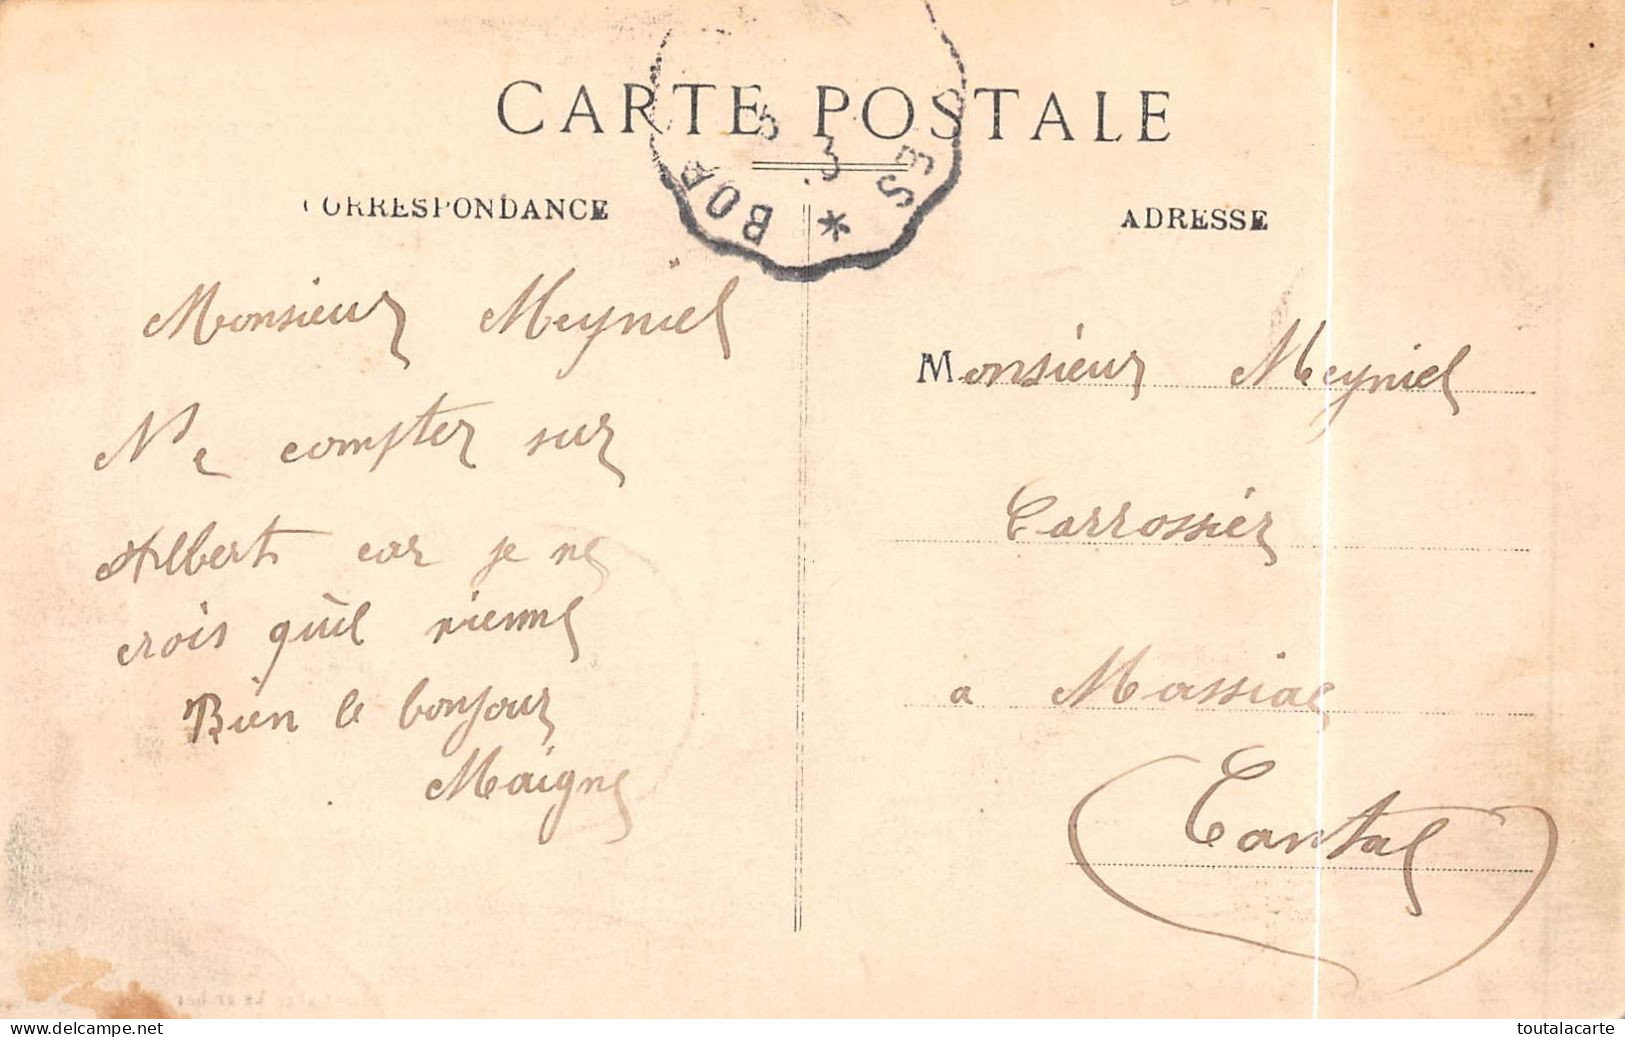 CARTE POSTALE
CORRESPONDANCE
ADRESSE
Monsieur Meyniel
Ne compter sur
Albert car je ne
crois qu'il vienne
Bien le bonjour
Maigne
Monsieur Meyniel
Carrossier
a Massiac
Cantal
5
3
BOR
*
SE
www.delcampe.net
toutalacarte